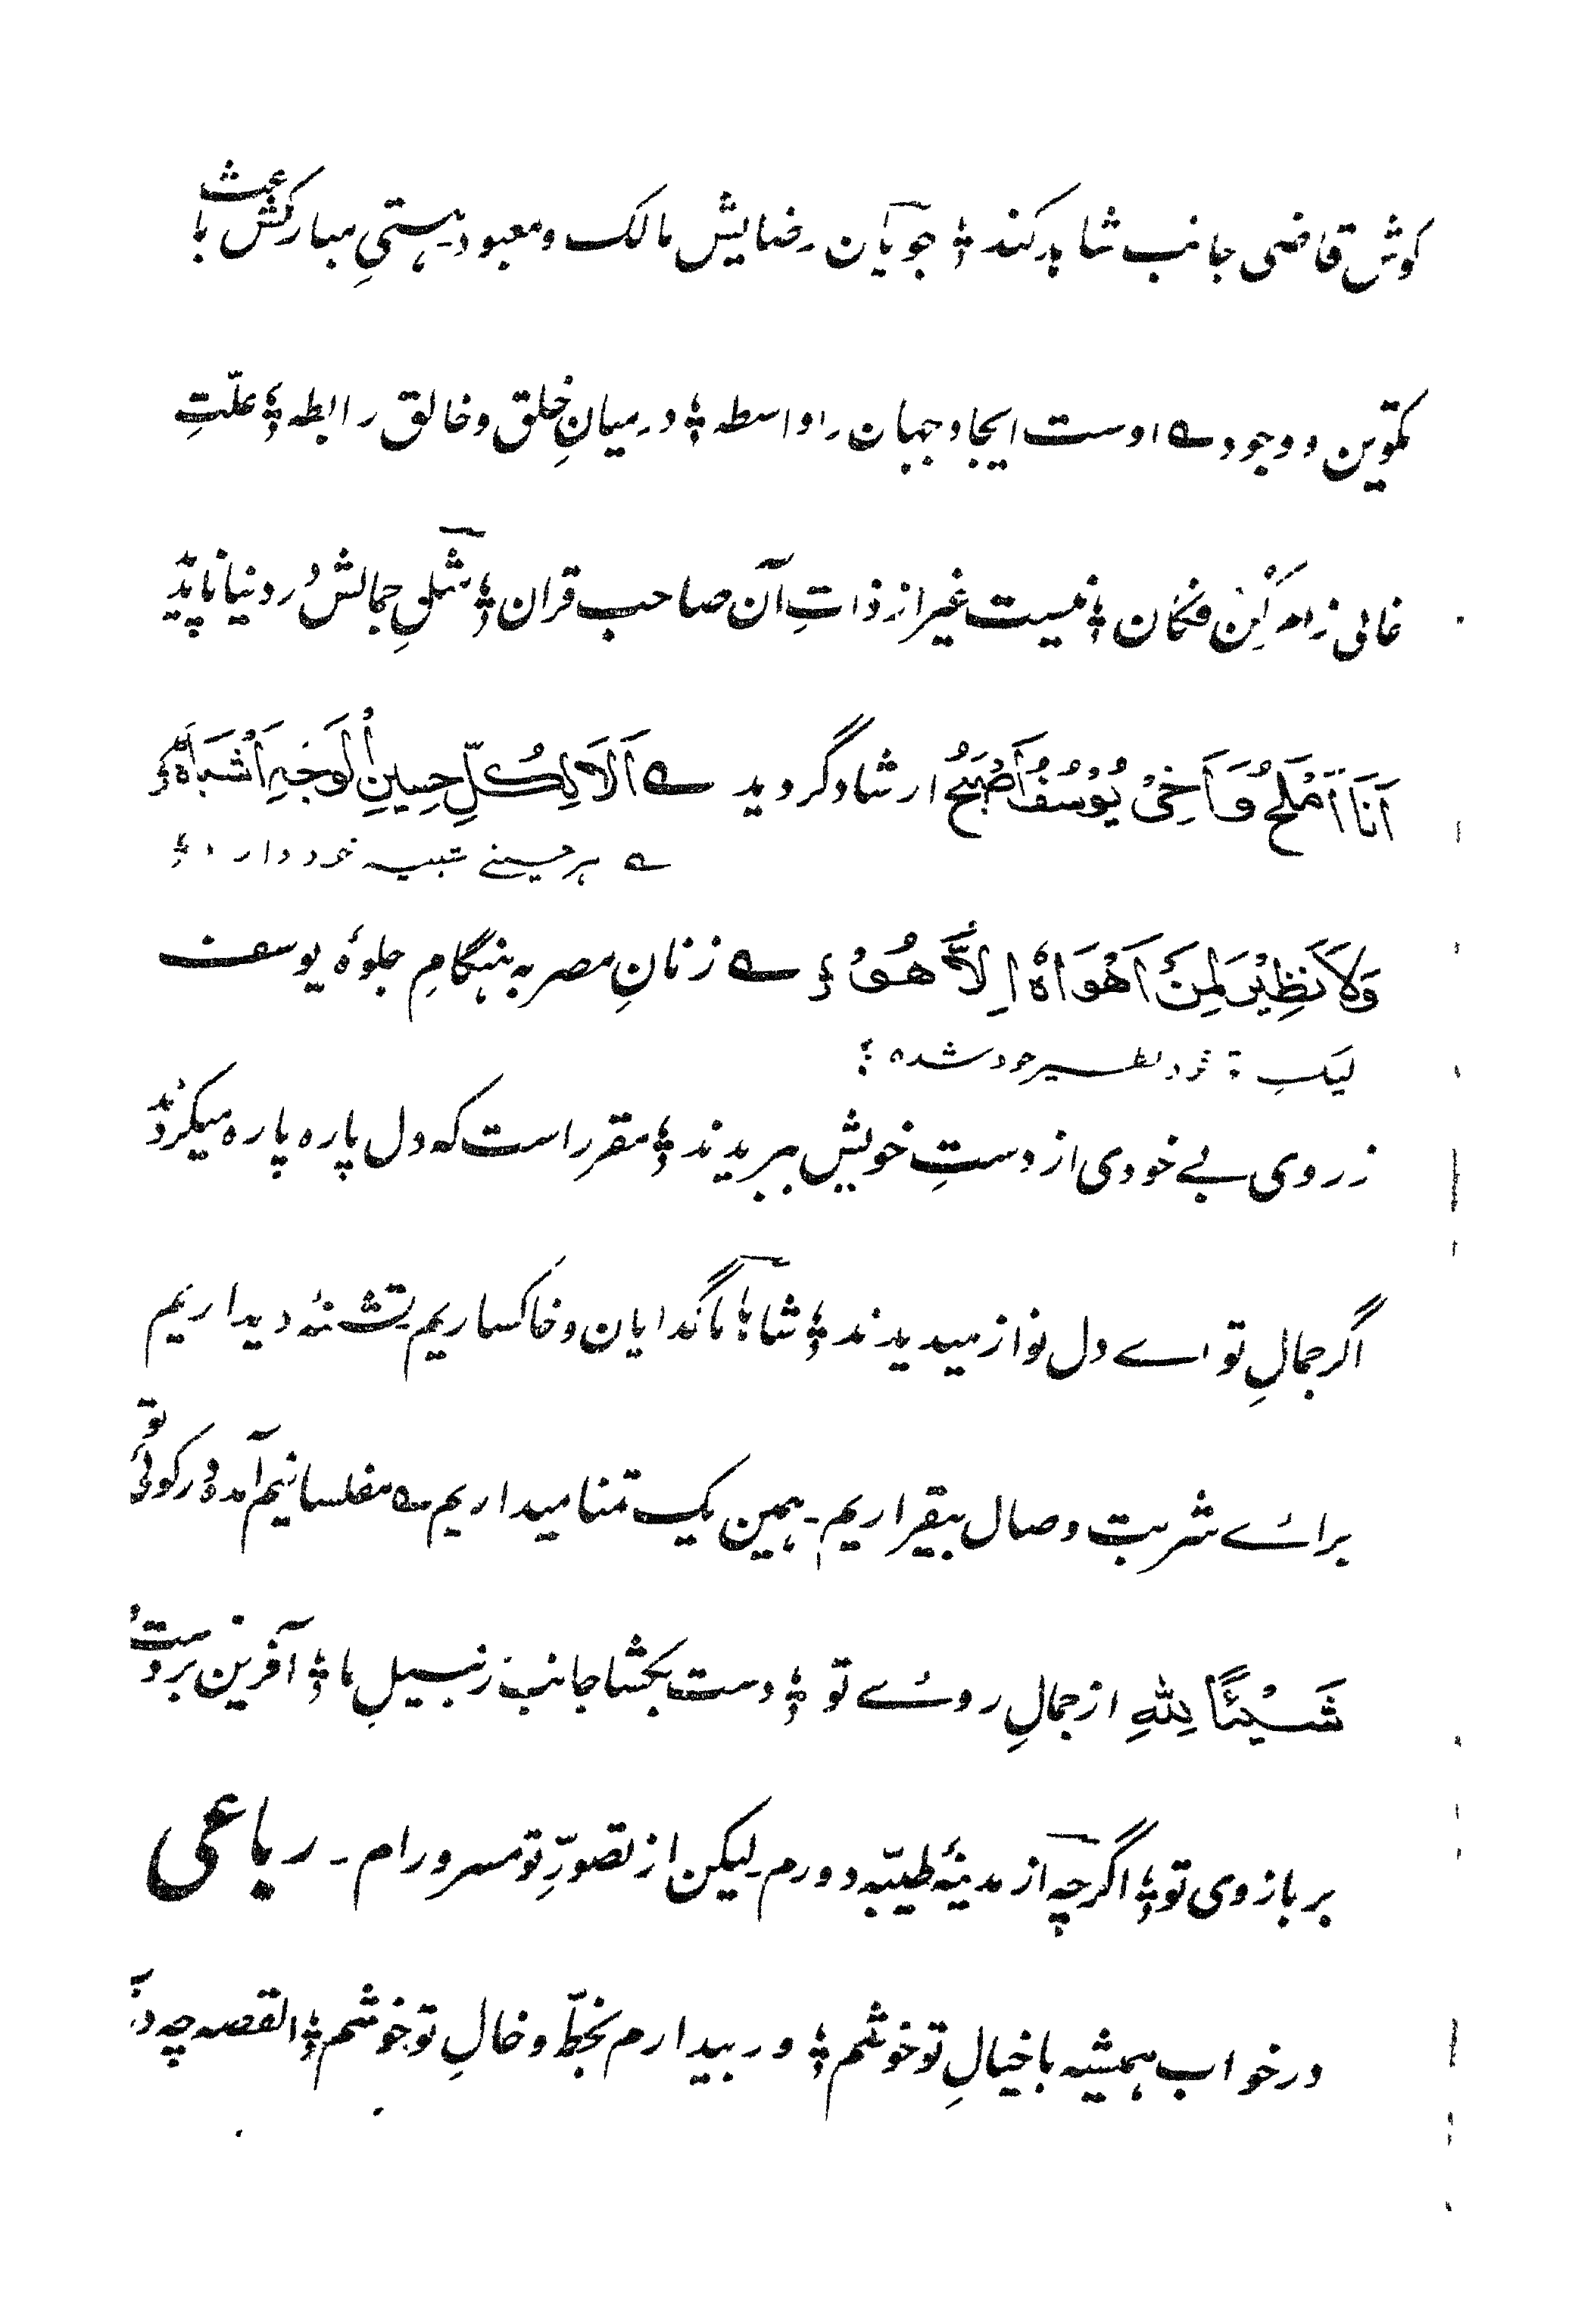 گوش قاضی جانب شاہد کند ؛ جویان رضایش مالک و معبود۔ ہستیِ مبارکش باعث
تکوین و وجود ؎ اوست ایجاد جہان را واسطہ ؛ درمیانِ خلق و خالق رابطہ ؛ علّتِ
غائی ز امر کُن فکان ؛ نیست غیر از ذاتِ آن صاحب قران ؛ مثلِ جمالش در دنیا ناپدید
اَنَا اَمْلَحُ وَ اَخِیْ یُوْسُفُ اَصْبَحُ ارشاد گردید ؎ اَلَا لِکُلِّ حَسِینِ الْوَجْہِ اَشْبَاہٌ ؛
؎ ہر حسینے شبیہ خود دارد ؛
وَلَا نَظِیْرَ لِمَنْ اَھْوَاہُ اِلَّا ھُوْ ؛ ؎ زنانِ مصر بہ ہنگامِ جلوۂ یوسف
لیک خود نظیر خود شدہ ؛
ز روی بے خودی از دستِ خویش ببریدند ؛ مقرر است کہ دل پارہ پارہ میکردند
اگر جمالِ تو اے دل نواز میدیدند ؛ شاہا ما گدایان و خاکساریم۔ تشنۂ دیداریم
برائے شربت وصال بیقراریم۔ ہمین یک تمنا میداریم ؎ مفلسانیم آمدہ در کوئی تو
شَیْئًا لِلّٰہِ از جمالِ روئے تو ؛ دست بکشا جانب زنبیلِ ما ؛ آفرین بر دست و
بر بازوی تو ؛ اگرچہ از مدینۂ طیّبہ دورم۔ لیکن از تصوّرِ تو مسرورام۔ رباعی
در خواب ہمیشہ با خیالِ تو خوشم ؛ ور بیدارم بخطّ و خالِ تو خوشم ؛ القصہ چہ در